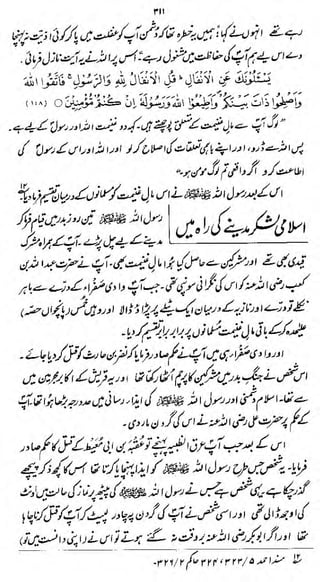 ۳۱۱
رہے تھے انہوں نے کہا؛ ہمیں یہ خطرہ تھا کہ دشمن آپ کو غفلت میں پا کر کوئی اذیت نہ پہنچا
دے اس لیے ہم آپ کی حفاظت میں مشغول رہے" اس پر اللہ نے یہ آیت نازل فرمائی۔
يَسْئَلُونَكَ عَنِ الْاَنْفَالِ ؕ قُلِ الْاَنْفَالُ لِلّٰهِ وَالرَّسُوْلِ ۚ فَاتَّقُوا اللّٰهَ
وَاَصْلِحُوْا ذَاتَ بَيْنِكُمْ ۪ وَاَطِيْعُوا اللّٰهَ وَرَسُوْلَهٗٓ اِنْ كُنْتُمْ مُّؤْمِنِيْنَ (۱:۸)
"لوگ آپ سے مال غنیمت کے متعلق پوچھتے ہیں۔ کہہ دو غنیمت اللہ اور رسول کے لیے ہے۔
پس اللہ سے ڈرو، اور اپنے باہمی تعلقات کی اصلاح کر لو اور اللہ اور اس کے رسول کی
اطاعت کرو اگر واقعی تم لوگ مومن ہو۔"
اس کے بعد رسول اللہ ﷺ نے اس مال غنیمت کو مسلمانوں کے درمیان تقسیم فرما دیا ۱۲؎
اسلامی لشکر مدینے کی راہ میں
رسول اللہ ﷺ تین روز بدر میں قیام فرما کر
مدینے کے لیے چل پڑے۔ آپ کے ہمراہ مشرک
قیدی بھی تھے اور مشرکین سے حاصل کیا ہوا مال غنیمت بھی۔ آپ نے حضرت عبداللہ بن
کعب رضی اللہ عنہ کو اس کی نگرانی سونپی تھی۔ جب آپ وادی صفراء کے درے سے باہر
نکلے تو درے اور نازیہ کے درمیان ایک ٹیلے پر پڑاؤ ڈالا اور وہیں خمس (پانچواں حصہ)
علیحدہ کر کے باقی مال غنیمت مسلمانوں پر برابر برابر تقسیم کر دیا۔
اور وادی صفراء ہی میں آپ نے حکم صادر فرمایا کہ نضر بن حارث کو قتل کر دیا جائے۔
اس شخص نے جنگ بدر میں مشرکین کا پرچم اٹھا رکھا تھا اور یہ قریش کے اکابر مجرمین میں
سے تھا۔ اسلام دشمنی اور رسول اللہ ﷺ کی ایذا رسانی میں حد درجہ بڑھا ہوا تھا۔ آپ
کے حکم پر حضرت علی رضی اللہ عنہ نے اس کی گردن مار دی۔
اس کے بعد جب آپ عرق الظبیہ پہنچے تو عقبہ بن ابی معیط کے قتل کا حکم صادر
فرمایا۔ یہ شخص جس طرح رسول اللہ ﷺ کو ایذا پہنچایا کرتا تھا اس کا کچھ ذکر پیچھے
گزر چکا ہے یہی شخص ہے جس نے رسول اللہ ﷺ کی پیٹھ پر نماز کی حالت میں اونٹ
کی اوجھ ڈالی تھی اور اسی شخص نے آپ کی گردن پر چادر لپیٹ کر آپ کو قتل کرنا چاہا
تھا اور اگر ابوبکر رضی اللہ عنہ بر وقت نہ آگئے ہوتے تو اس نے (اپنی دانست میں تو)
۱۲؎ مسند احمد ۵/ ۳۲۳، ۳۲۴ حاکم ۲/ ۳۲۶۔